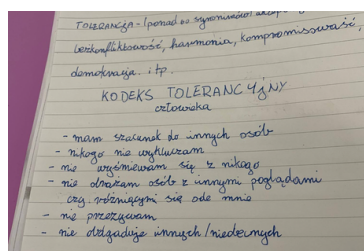 TOLERANCJA - (ponad 80 synonimów) akcep
bezkonfliktowość, harmonia, kompromisowość,
demokracja. itp.
KODEKS TOLERANCYJNY
człowieka
- mam szacunek do innych osób
- nikogo nie wykluczam
- nie wyśmiewam się z nikogo
- nie obrażam osób z innymi poglądami
czy różniącymi się ode mnie
- nie przezywam
- nie innych/niedecnych